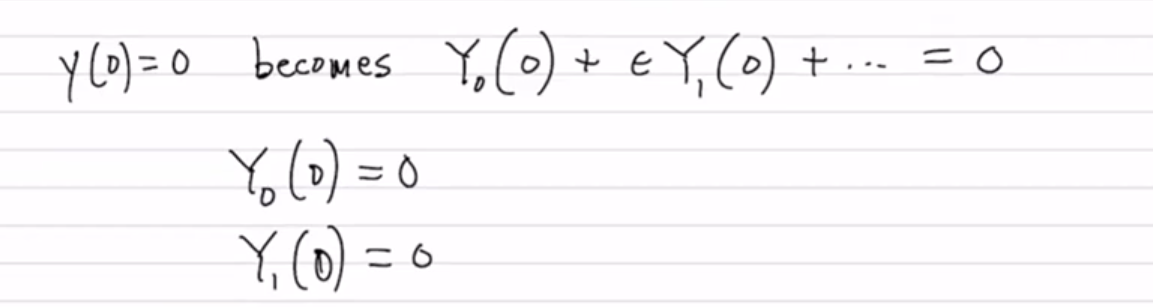 y(0)=0 becomes Y₀(0) + ϵY₁(0) + ... = 0
Y₀(0) = 0
Y₁(0) = 0